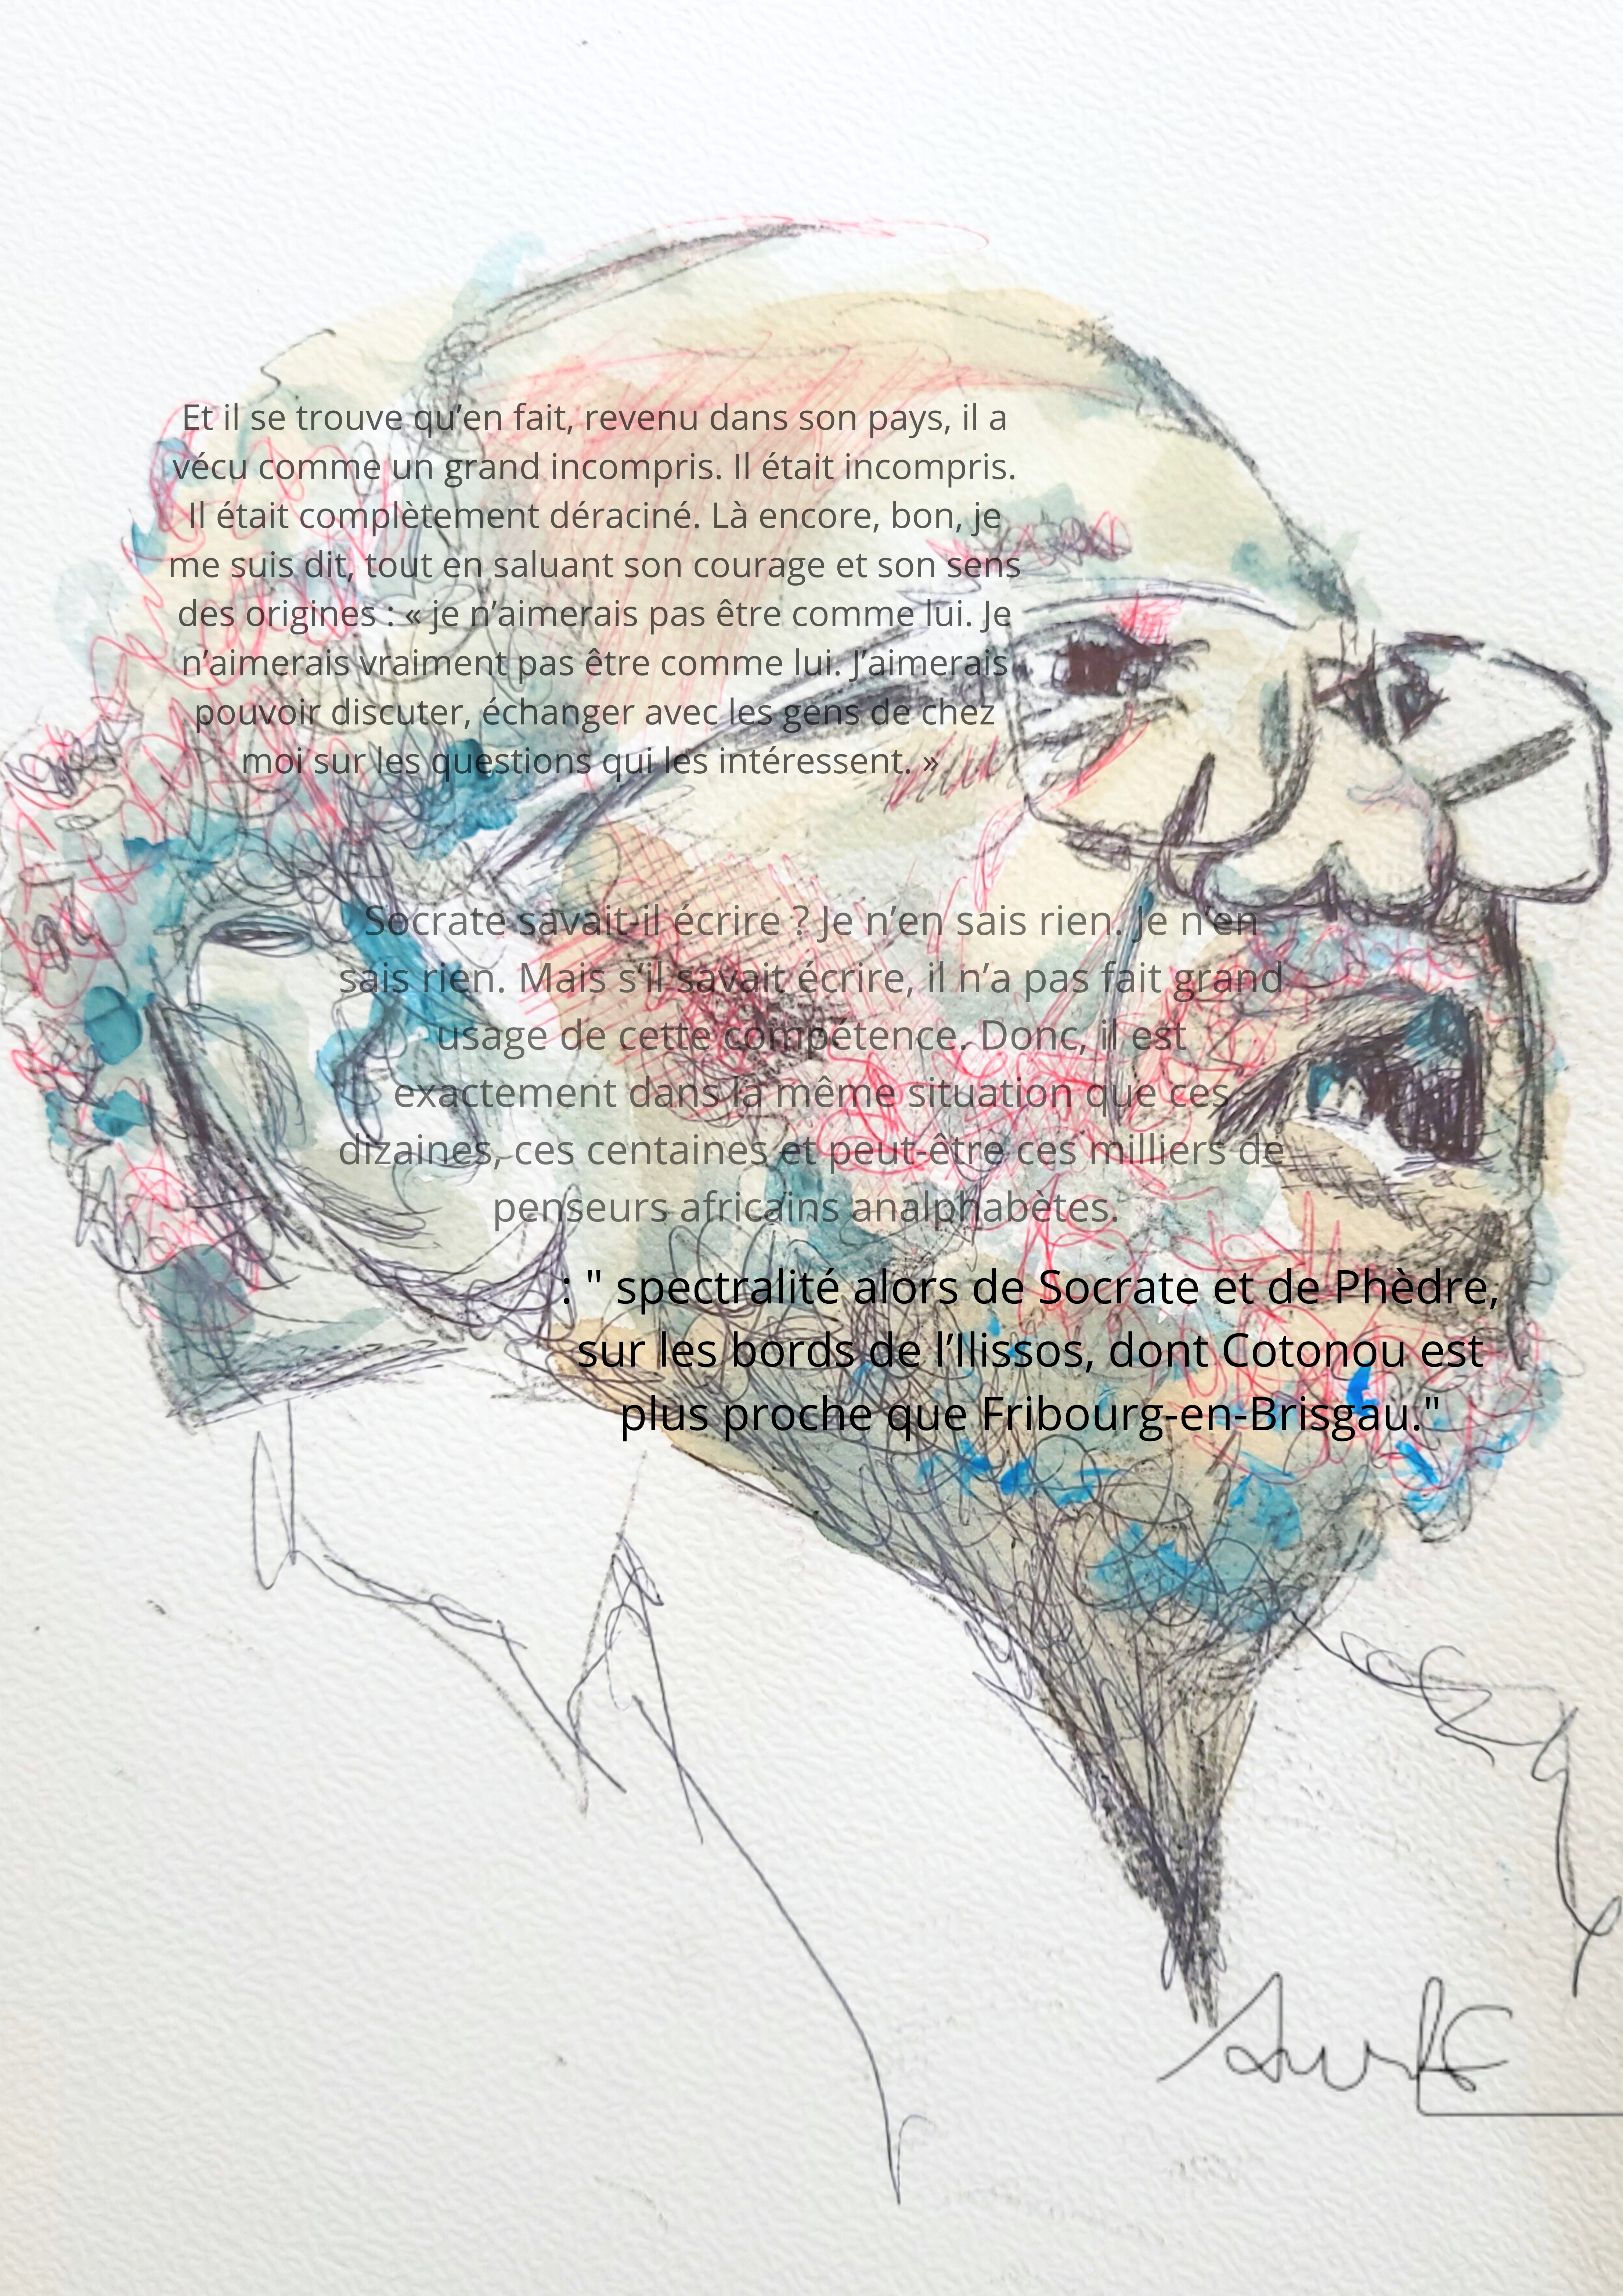 Et il se trouve qu’en fait, revenu dans son pays, il a
vécu comme un grand incompris. Il était incompris.
Il était complètement déraciné. Là encore, bon, je
me suis dit, tout en saluant son courage et son sens
des origines : « je n’aimerais pas être comme lui. Je
n’aimerais vraiment pas être comme lui. J’aimerais
pouvoir discuter, échanger avec les gens de chez
moi sur les questions qui les intéressent. »
Socrate savait-il écrire ? Je n’en sais rien. Je n’en
sais rien. Mais s’il savait écrire, il n’a pas fait grand
usage de cette compétence. Donc, il est
exactement dans la même situation que ces
dizaines, ces centaines et peut-être ces milliers de
penseurs africains analphabètes.
: " spectralité alors de Socrate et de Phèdre,
sur les bords de l’Ilissos, dont Cotonou est
plus proche que Fribourg-en-Brisgau."